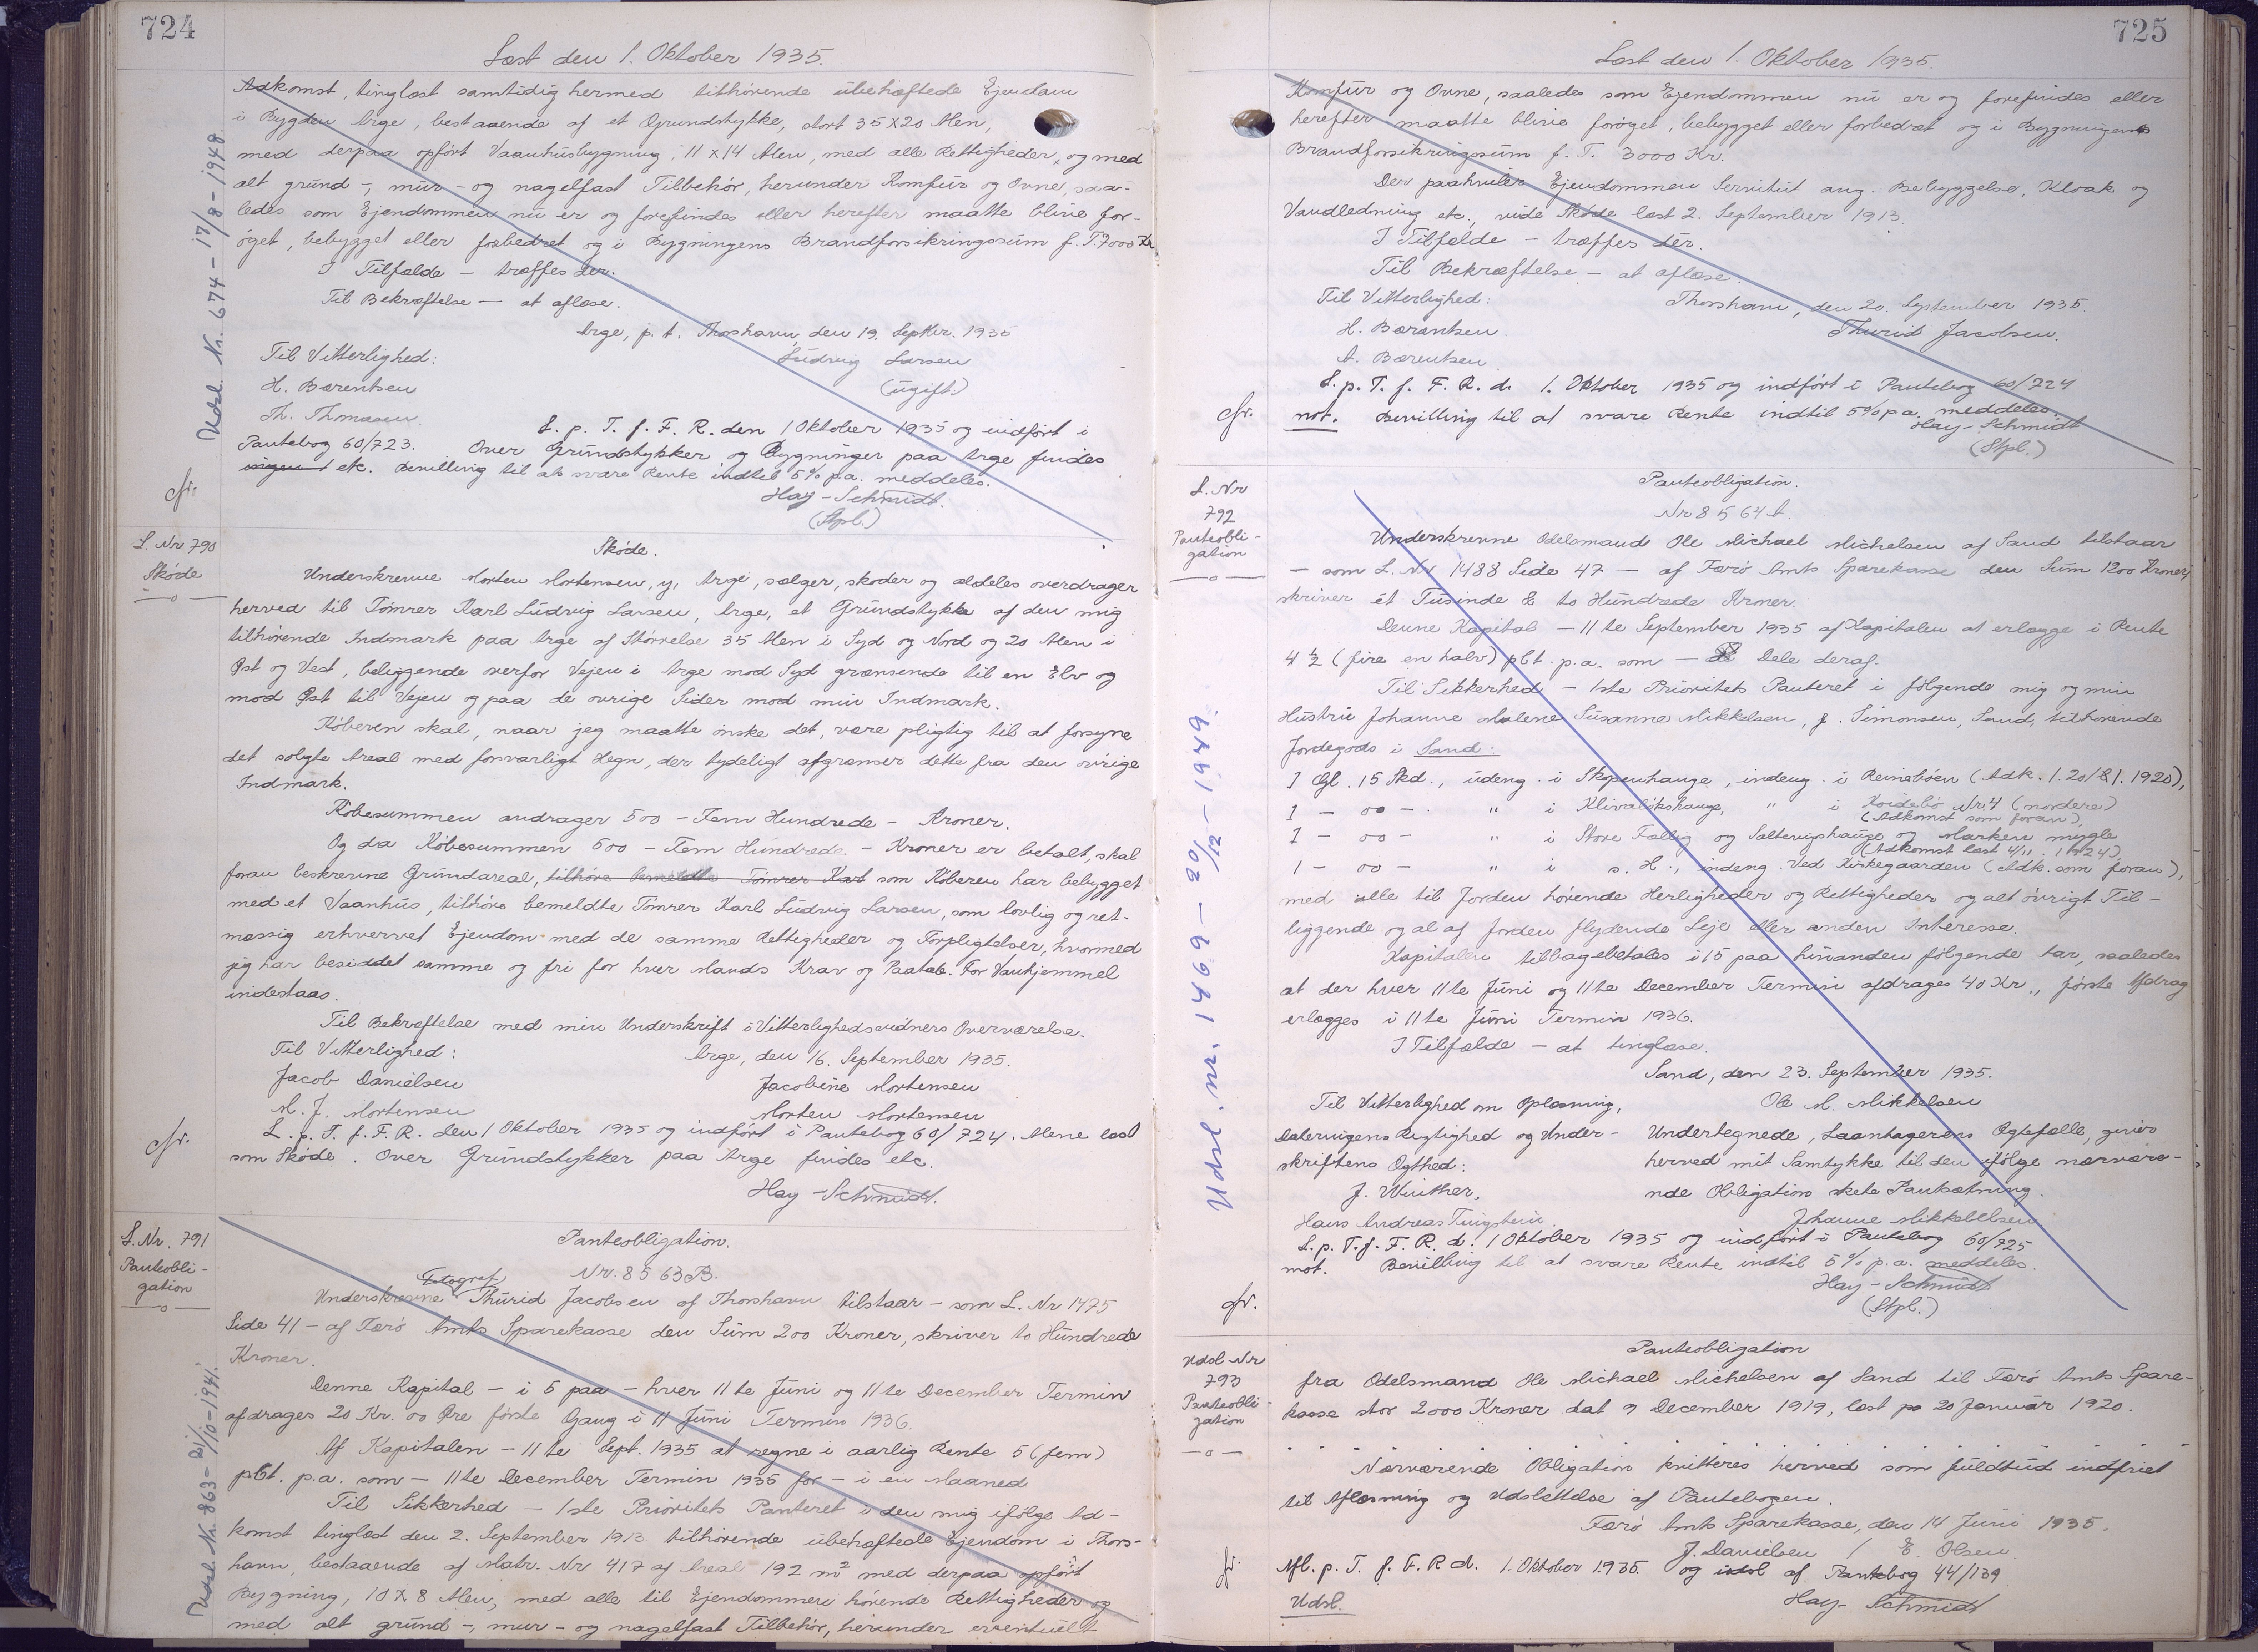 724
Læst den 1. Oktober 1935.
Adkomst, tinglæst samtidig hermed tilhørende ubehæftede Ejendom
i Bygden Arge, bestaaende af et Grundstykke, stort 35 x 20 Alen,
med derpaa opført Vaanhusbygning, 11 x 14 Alen, med alle Rettigheder, og med
alt grund-, mur- og nagelfast Tilbehør, herunder Komfur og Ovne, saa-
ledes som Ejendommen nu er og forefindes eller herefter maatte blive for-
øget, bebygget eller forbedret og i Bygningens Brandforsikringssum f. T. 7000 Kr.
I Tilfælde - træffes der.
Til Bekræftelse - at aflæse.
Arge, p. t. Thorshavn, den 19. Septbr. 1935
Til Vitterlighed: Ludvig Larsen
H. Barentsen (ugift)
Th. Thomasen.
L. p. T. f. F. R. den 1 Oktober 1935 og indført i
Pantebog 60/723. Over Grundstykker og Bygninger paa Arge findes
ingen etc. Bevilling til at svare Rente indtil 5% p.a. meddeles.
cfr. Hay-Schmidt.
(Stpl.)
Udsl. Nr. 674 - 17/8 - 1948
L. Nr 790
Skøde
Skøde.
Underskrevne Morten Mortensen, y, Arge, sælger, skøder og aldeles overdrager
herved til Tømrer Karl Ludvig Larsen, Arge, et Grundstykke af den mig
tilhørende Indmark paa Arge af Størrelse 35 Alen i Syd og Nord og 20 Alen i
Øst og Vest, beliggende overfor Vejen i Arge mod Syd grænsende til en Elv og
mod Øst til Vejen og paa de øvrige Sider mod min Indmark.
Køberen skal, naar jeg maatte ønske det, være pligtig til at forsyne
det solgte Areal med forsvarligt Hegn, der tydeligt afgrænser dette fra den øvrige
Indmark.
Købesummen andrager 500 - Fem Hundrede - Kroner.
Og da Købesummen 500 - Fem Hundrede - Kroner er betalt, skal
foran beskrevne Grundareal, tilhøre bemeldte Tømrer Karl som Køberen har bebygget
med et Vaanhus, tilhøre bemeldte Tømrer Karl Ludvig Larsen, som lovlig og ret-
mæssig erhvervet Ejendom med de samme Rettigheder og Forpligtelser, hvormed
jeg har besiddet samme og fri for hver Mands Krav og Paatale. For Vanhjemmel
indestaas.
Til Bekræftelse med min Underskrift i Vitterlighedsvidners Overværelse.
Til Vitterlighed: Arge, den 16. September 1935.
Jacob Danielsen Jacobine Mortensen
M. J. Mortensen Morten Mortensen
L. p. T. f. F. R. den 1 Oktober 1935 og indført i Pantebog 60/724. Alene læst
cfr. som Skøde. Over Grundstykker paa Arge findes etc.
Hay-Schmidt.
L. Nr. 791
Panteobli-
gation
Panteobligation.
Nr. 8563 B.
Fotograf
Underskrevne Thurid Jacobsen af Thorshavn tilstaar - som L. Nr 1475
Side 41 - af Færø Amts Sparekasse den Sum 200 Kroner, skriver to Hundrede
Kroner.
Denne Kapital - i 5 paa - hver 11te Juni og 11te December Termin
afdrages 20 Kr. 00 Øre første Gang i 11 Juni Termin 1936.
Af Kapitalen - 11te Sept. 1935 at regne i aarlig Rente 5 (fem)
pCt. p.a. som - 11te December Termin 1935 for - i en Maaned
Til Sikkerhed - 1ste Prioritets Panteret i den mig ifølge Ad-
komst tinglæst den 2. September 1913 tilhørende ubehæftede Ejendom i Thors-
havn, bestaaende af Matr. Nr 417 af Areal 192 m² med derpaa opført
Bygning, 10 x 8 Alen, med alle til Ejendommen hørende Rettigheder og
med alt grund-, mur- og nagelfast Tilbehør, herunder eventuelt
Udsl. Nr. 863 - 21/10 - 1941.
725
Læst den 1. Oktober 1935.
Komfur og Ovne, saaledes som Ejendommen nu er og forefindes eller
herefter maatte blive forøget, bebygget eller forbedret og i Bygningens
Brandforsikringssum f. T. 3000 Kr.
Der paahviler Ejendommen Servitut ang. Bebyggelse, Kloak og
Vandledning etc., vide Skøde læst 2. September 1913.
I Tilfælde - træffes der.
Til Bekræftelse - at aflæse.
Til Vitterlighed: Thorshavn, den 20. September 1935.
H. Barentsen. Thurid Jacobsen.
A. Barentsen
L. p. T. f. F. R. d. 1. Oktober 1935 og indført i Pantebog 60/724
cfr. not. Bevilling til at svare Rente indtil 5% p.a. meddeles.
Hay-Schmidt
(Stpl.)
L. Nr
792
Panteobli-
gation
Panteobligation.
Nr 8564 A.
Underskrevne Odelsmand Ole Michael Michelsen af Sand tilstaar
- som L. Nr 1488 Side 47 - af Færø Amts Sparekasse den Sum 1200 Kroner,
skriver ét Tusinde & to Hundrede Kroner.
Denne Kapital - 11te September 1935 af Kapitalen at erlægge i Rente
4 ½ (fire en halv) pCt. p.a. som - Dele deraf.
Til Sikkerhed - 1ste Prioritets Panteret i følgende mig og min
Hustru Johanne Malene Susanne Mikkelsen, f. Simonsen, Sand, tilhørende
Jordegods i Sand:
1 Gl. 15 Skd., udeng. i Skopenhauge, indeng. i Reinsbøen (Adk. l. 20/1 1920),
1 - 00 - " i Klivaløkshauge, " i Koidebø Nr. 4 (nordere)
(Adkomst som foran).
1 - 00 - " i Store Fællig og Saltevigshauge og Marken mygle
(Adkomst læst 4/11 1924)
1 - 00 - " i s. H., indeng. ved Kirkegaarden (Adk. som foran),
med alle til Jorden hørende Herligheder og Rettigheder og alt øvrigt Til-
liggende og al af Jorden flydende Leje eller anden Interesse.
Kapitalen tilbagebetales i 15 paa hinanden følgende Aar, saaledes
at der hver 11te Juni og 11te December Termin afdrages 40 Kr., første Afdrag
erlægges i 11te Juni Termin 1936.
I Tilfælde - at tinglæse.
Sand, den 23. September 1935.
Til Vitterlighed om Oplæsning, Ole M. Mikkelsen
Dateringens Rigtighed og Under- Undertegnede, Laantagerens Ægtefælle, giver
skriftens Ægthed: herved mit Samtykke til den ifølge nærvære-
J. Winther, nde Obligation skete Pantsætning.
Hans Andreas Tingstein. Johanne Mikkelsen
L. p. T. f. F. R. d. 1 Oktober 1935 og indført i Pantebog 60/725
not. Bevilling til at svare Rente indtil 5% p.a. meddeles.
Hay-Schmidt
cfr. (Stpl.)
Udsl. nr. 1469 - 20/12 - 1949.
Udsl. Nr
793
Panteobli-
gation
Panteobligation
fra Odelsmand Ole Michael Michelsen af Sand til Færø Amts Spare-
kasse stor 2000 Kroner dat 9 December 1919, læst 20 Januar 1920.
Nærværende Obligation kvitteres herved som fuldtud indfriet
til Aflæsning og Udslettelse af Pantebogen.
Færø Amts Sparekasse, den 14 Juni 1935.
J. Danielsen / E. Olsen
cfr. Afl. p. T. f. F. R. d. 1. Oktober 1935. og udsl. af Pantebog 44/139
Udsl. Hay-Schmidt